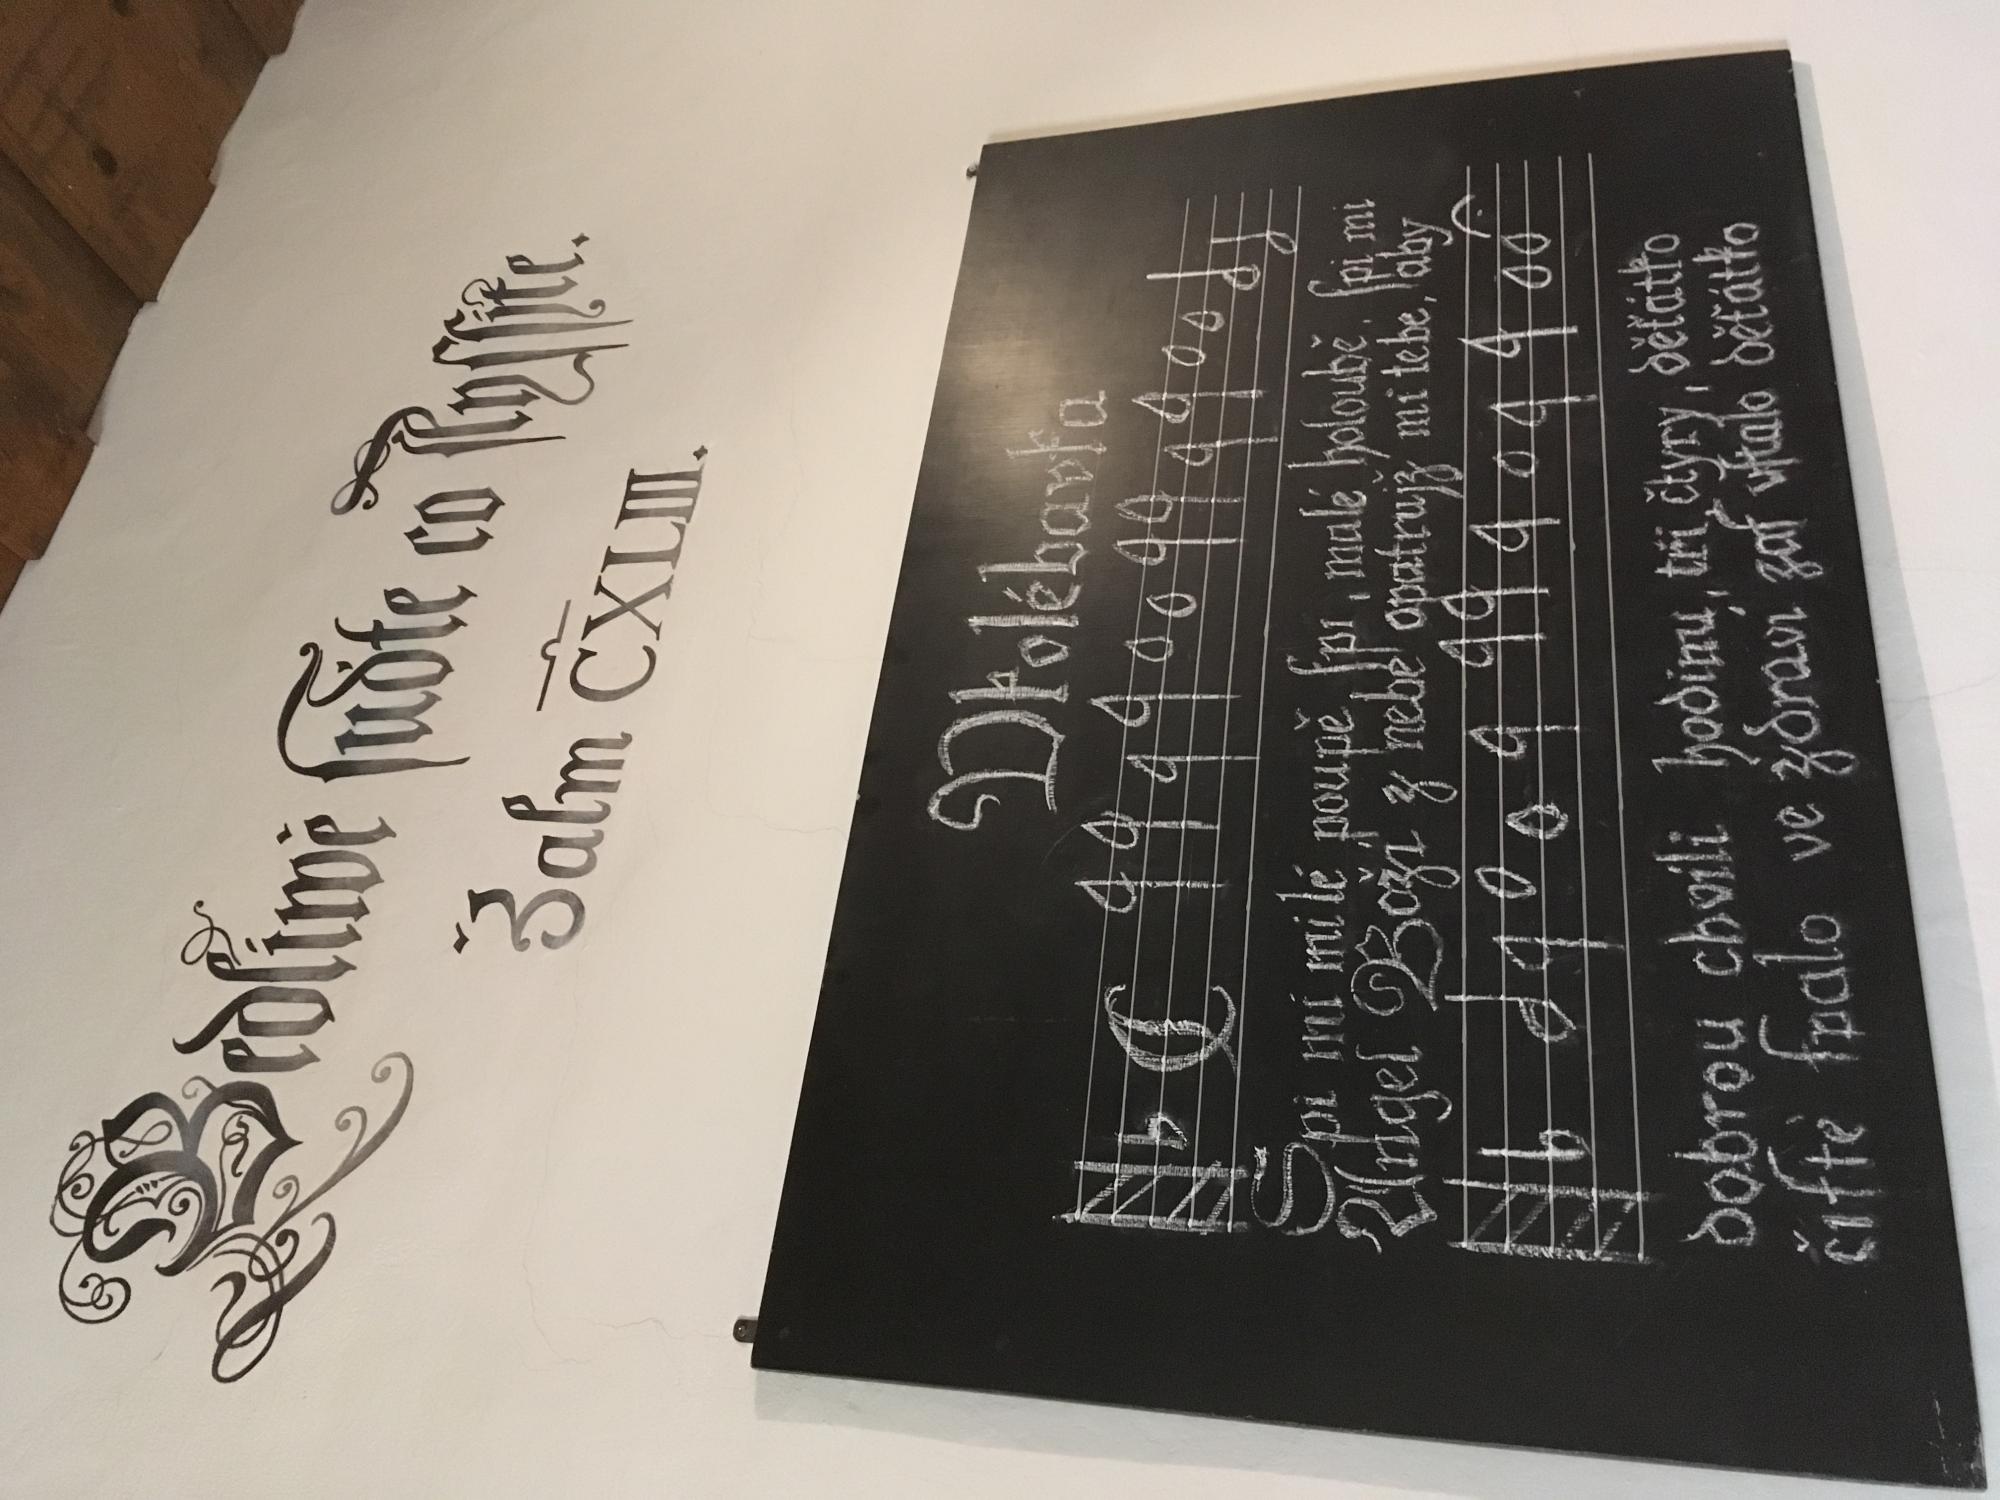 Bedliwě suďte co slyssite.
Žalm CXLIII.
Ukolébavka
Spi mi milé poupě spi, malé holoubě, spi mi
Angel Boží z nebe opatruјž mi tebe, aby
dobrou chvili hodinu, tři čtyry, děťátko
čisťě spalo ve zdraví zas vstalo děťátko